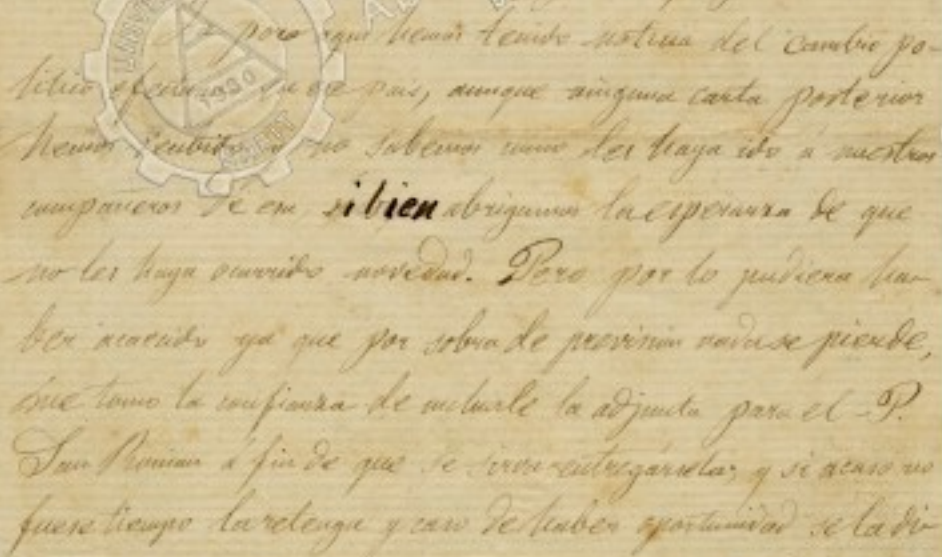 por aqui hemos tenido noticia del cambio po-
litico efectuado en ese pais, aunque ninguna carta posterior
hemos recibido y no sabemos como les haya ido á nuestros
compañeros de esa si bien abrigamos la esperanza de que
no les haya ocurrido novedad. Pero por lo pudiera ha-
ber acaecido ya que por sobra de prevision nada se pierde,
me tomo la confianza de incluirle la adjunta para el P.
San Roman á fin de que se sirva entregársela, y si acaso no
fuere tiempo la retenga y caso de haber oportunidad se la di
1930